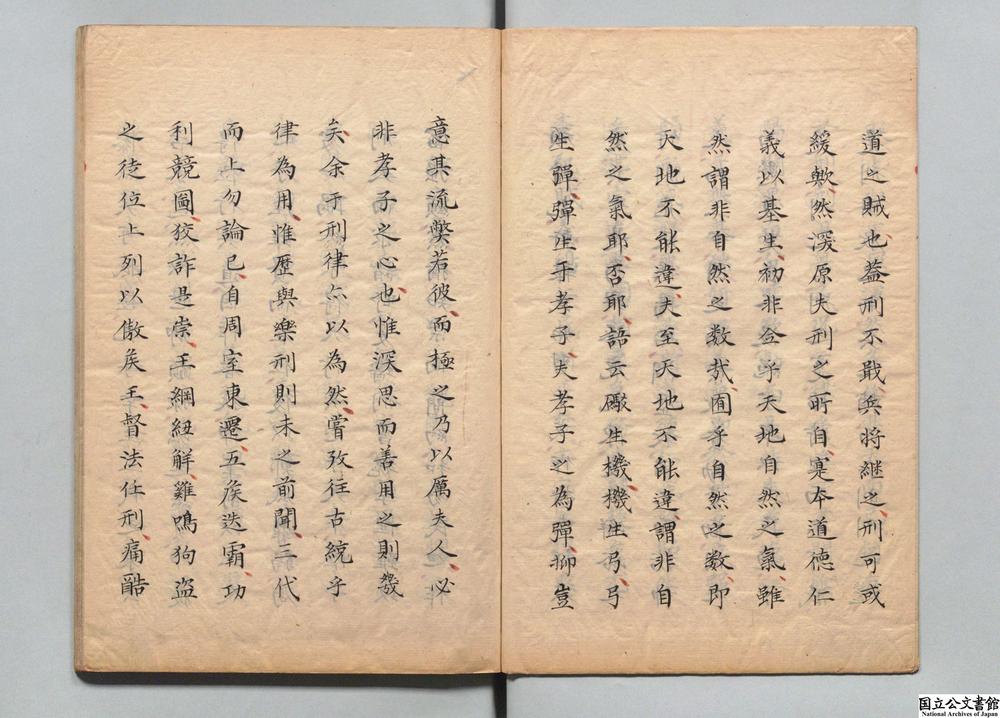 道之賊也蓋刑不戢兵将継之刑可或
緩歟然深原夫刑之所自寔本道德仁
義以基生初非仝乎天地自然之氣雖
然謂非自然之数㢤囿乎自然之数即
天地不能違夫至天地不能違謂非自
然之氣耶否耶語云礮生機機生弓弓
生彈彈生于孝子夫孝子之為彈抑豈
意其流獘若彼而極之乃以厲夫人必
非孝子之心也惟深思而善用之則幾
矣余于刑律亦以為然嘗攷往古統乎
律為用惟歷與樂刑則未之前聞三代
而上勿論已自周室東遷五矦迭霸功
利競圖狡詐是崇王綱紐解雞鳴狗盜
之徒位上列以傲矦王督法任刑痛酷
国立公文書館
National Archives of Japan